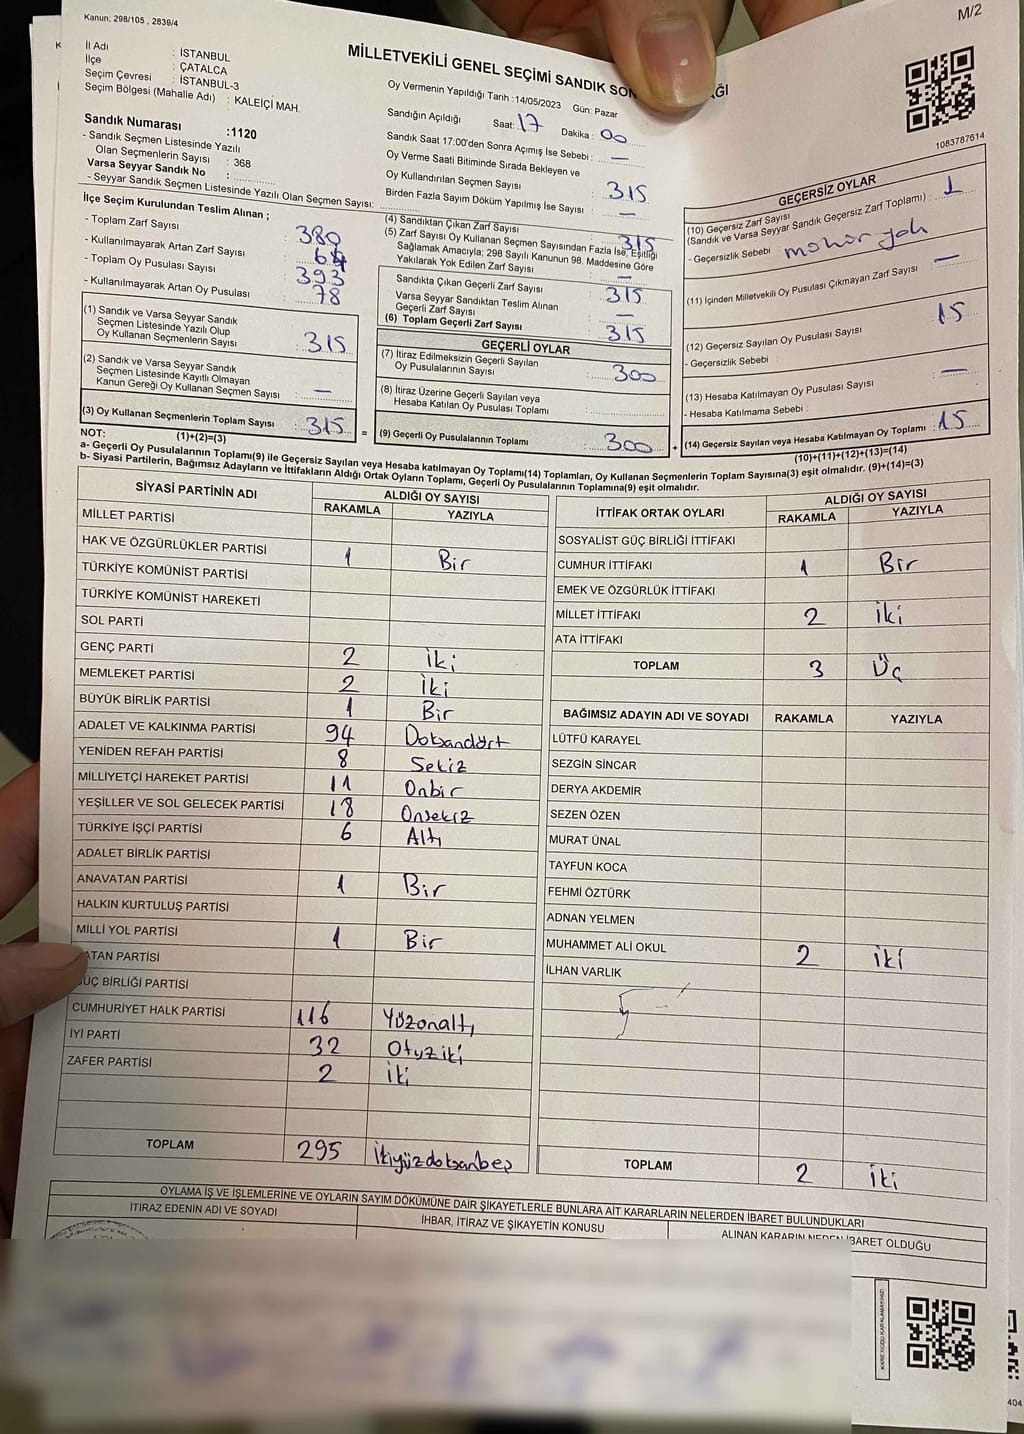 Kanun; 298/105 , 2839/4
M/2
MİLLETVEKİLİ GENEL SEÇİMİ SANDIK SON
AĞI
İl Adı : İSTANBUL
İlçe : ÇATALCA
Seçim Çevresi : İSTANBUL-3
Seçim Bölgesi (Mahalle Adı) : KALEİÇİ MAH.
Oy Vermenin Yapıldığı Tarih :14/05/2023 Gün: Pazar
Sandığın Açıldığı Saat: 17 Dakika : 00
Sandık Saat 17:00'den Sonra Açımış İse Sebebi : —
Oy Verme Saati Bitiminde Sırada Bekleyen ve
Oy Kullandırılan Seçmen Sayısı : 315
Birden Fazla Sayım Döküm Yapılmış İse Sayısı : —
1083787614
Sandık Numarası :1120
- Sandık Seçmen Listesinde Yazılı
Olan Seçmenlerin Sayısı : 368
Varsa Seyyar Sandık No :
- Seyyar Sandık Seçmen Listesinde Yazılı Olan Seçmen Sayısı:
İlçe Seçim Kurulundan Teslim Alınan ;
- Toplam Zarf Sayısı : 380
- Kullanılmayarak Artan Zarf Sayısı
- Toplam Oy Pusulası Sayısı : 393
- Kullanılmayarak Artan Oy Pusulası : 78
(1) Sandık ve Varsa Seyyar Sandık
Seçmen Listesinde Yazılı Olup
Oy Kullanan Seçmenlerin Sayısı : 315
(2) Sandık ve Varsa Seyyar Sandık
Seçmen Listesinde Kayıtlı Olmayan
Kanun Gereği Oy Kullanan Seçmen Sayısı : —
(3) Oy Kullanan Seçmenlerin Toplam Sayısı : 315
(1)+(2)=(3)
(4) Sandıktan Çıkan Zarf Sayısı : 315
(5) Zarf Sayısı Oy Kullanan Seçmen Sayısından Fazla İse, Eşitliği
Sağlamak Amacıyla; 298 Sayılı Kanunun 98. Maddesine Göre
Yakılarak Yok Edilen Zarf Sayısı : —
Sandıkta Çıkan Geçerli Zarf Sayısı : 315
Varsa Seyyar Sandıktan Teslim Alınan
Geçerli Zarf Sayısı : —
(6) Toplam Geçerli Zarf Sayısı : 315
GEÇERLİ OYLAR
(7) İtiraz Edilmeksizin Geçerli Sayılan
Oy Pusulalarının Sayısı : 300
(8) İtiraz Üzerine Geçerli Sayılan veya
Hesaba Katılan Oy Pusulası Toplamı
= (9) Geçerli Oy Pusulalarının Toplamı : 300 +
GEÇERSİZ OYLAR
(10) Geçersiz Zarf Sayısı
(Sandık ve Varsa Seyyar Sandık Geçersiz Zarf Toplamı) : 1
- Geçersizlik Sebebi : mohor yok
(11) İçinden Milletvekili Oy Pusulası Çıkmayan Zarf Sayısı : —
(12) Geçersiz Sayılan Oy Pusulası Sayısı : 15
- Geçersizlik Sebebi :
(13) Hesaba Katılmayan Oy Pusulası Sayısı : —
- Hesaba Katılmama Sebebi :
(14) Geçersiz Sayılan veya Hesaba Katılmayan Oy Toplamı : 15
(10)+(11)+(12)+(13)=(14)
NOT:
a- Geçerli Oy Pusulalarının Toplamı(9) ile Geçersiz Sayılan veya Hesaba katılmayan Oy Toplamı(14) Toplamları, Oy Kullanan Seçmenlerin Toplam Sayısına(3) eşit olmalıdır. (9)+(14)=(3)
b- Siyasi Partilerin, Bağımsız Adayların ve İttifakların Aldığı Ortak Oyların Toplamı, Geçerli Oy Pusulalarının Toplamına(9) eşit olmalıdır.
SİYASİ PARTİNİN ADI ALDIĞI OY SAYISI
RAKAMLA YAZIYLA
MİLLET PARTİSİ
HAK VE ÖZGÜRLÜKLER PARTİSİ 1 Bir
TÜRKİYE KOMÜNİST PARTİSİ
TÜRKİYE KOMÜNİST HAREKETİ
SOL PARTİ
GENÇ PARTİ 2 iki
MEMLEKET PARTİSİ 2 İki
BÜYÜK BİRLİK PARTİSİ 1 Bir
ADALET VE KALKINMA PARTİSİ 94 Doksandört
YENİDEN REFAH PARTİSİ 8 Sekiz
MİLLİYETÇİ HAREKET PARTİSİ 11 Onbir
YEŞİLLER VE SOL GELECEK PARTİSİ 18 Onsekiz
TÜRKİYE İŞÇİ PARTİSİ 6 Altı
ADALET BİRLİK PARTİSİ
ANAVATAN PARTİSİ 1 Bir
HALKIN KURTULUŞ PARTİSİ
MİLLİ YOL PARTİSİ 1 Bir
ATAN PARTİSİ
ÜÇ BİRLİĞİ PARTİSİ
CUMHURİYET HALK PARTİSİ 116 Yüzonaltı
İYİ PARTİ 32 Otuziki
ZAFER PARTİSİ 2 iki
TOPLAM 295 ikiyüzdoksanbeş
İTTİFAK ORTAK OYLARI ALDIĞI OY SAYISI
RAKAMLA YAZIYLA
SOSYALİST GÜÇ BİRLİĞİ İTTİFAKI
CUMHUR İTTİFAKI 1 Bir
EMEK VE ÖZGÜRLÜK İTTİFAKI
MİLLET İTTİFAKI 2 iki
ATA İTTİFAKI
TOPLAM 3 Üç
BAĞIMSIZ ADAYIN ADI VE SOYADI RAKAMLA YAZIYLA
LÜTFÜ KARAYEL
SEZGİN SİNCAR
DERYA AKDEMİR
SEZEN ÖZEN
MURAT ÜNAL
TAYFUN KOCA
FEHMİ ÖZTÜRK
ADNAN YELMEN
MUHAMMET ALİ OKUL 2 iki
İLHAN VARLIK
TOPLAM 2 iki
OYLAMA İŞ VE İŞLEMLERİNE VE OYLARIN SAYIM DÖKÜMÜNE DAİR ŞİKAYETLERLE BUNLARA AİT KARARLARIN NELERDEN İBARET BULUNDUKLARI
İTİRAZ EDENİN ADI VE SOYADI
İHBAR, İTİRAZ VE ŞİKAYETİN KONUSU
ALINAN KARARIN NEDEN İBARET OLDUĞU
KARE KODU KARALAMAYINIZ!
404